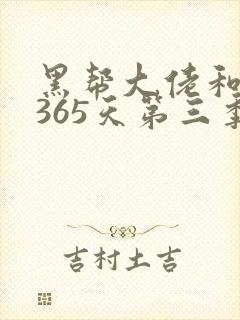 黑帮大佬和
365天第三季
吉村土吉